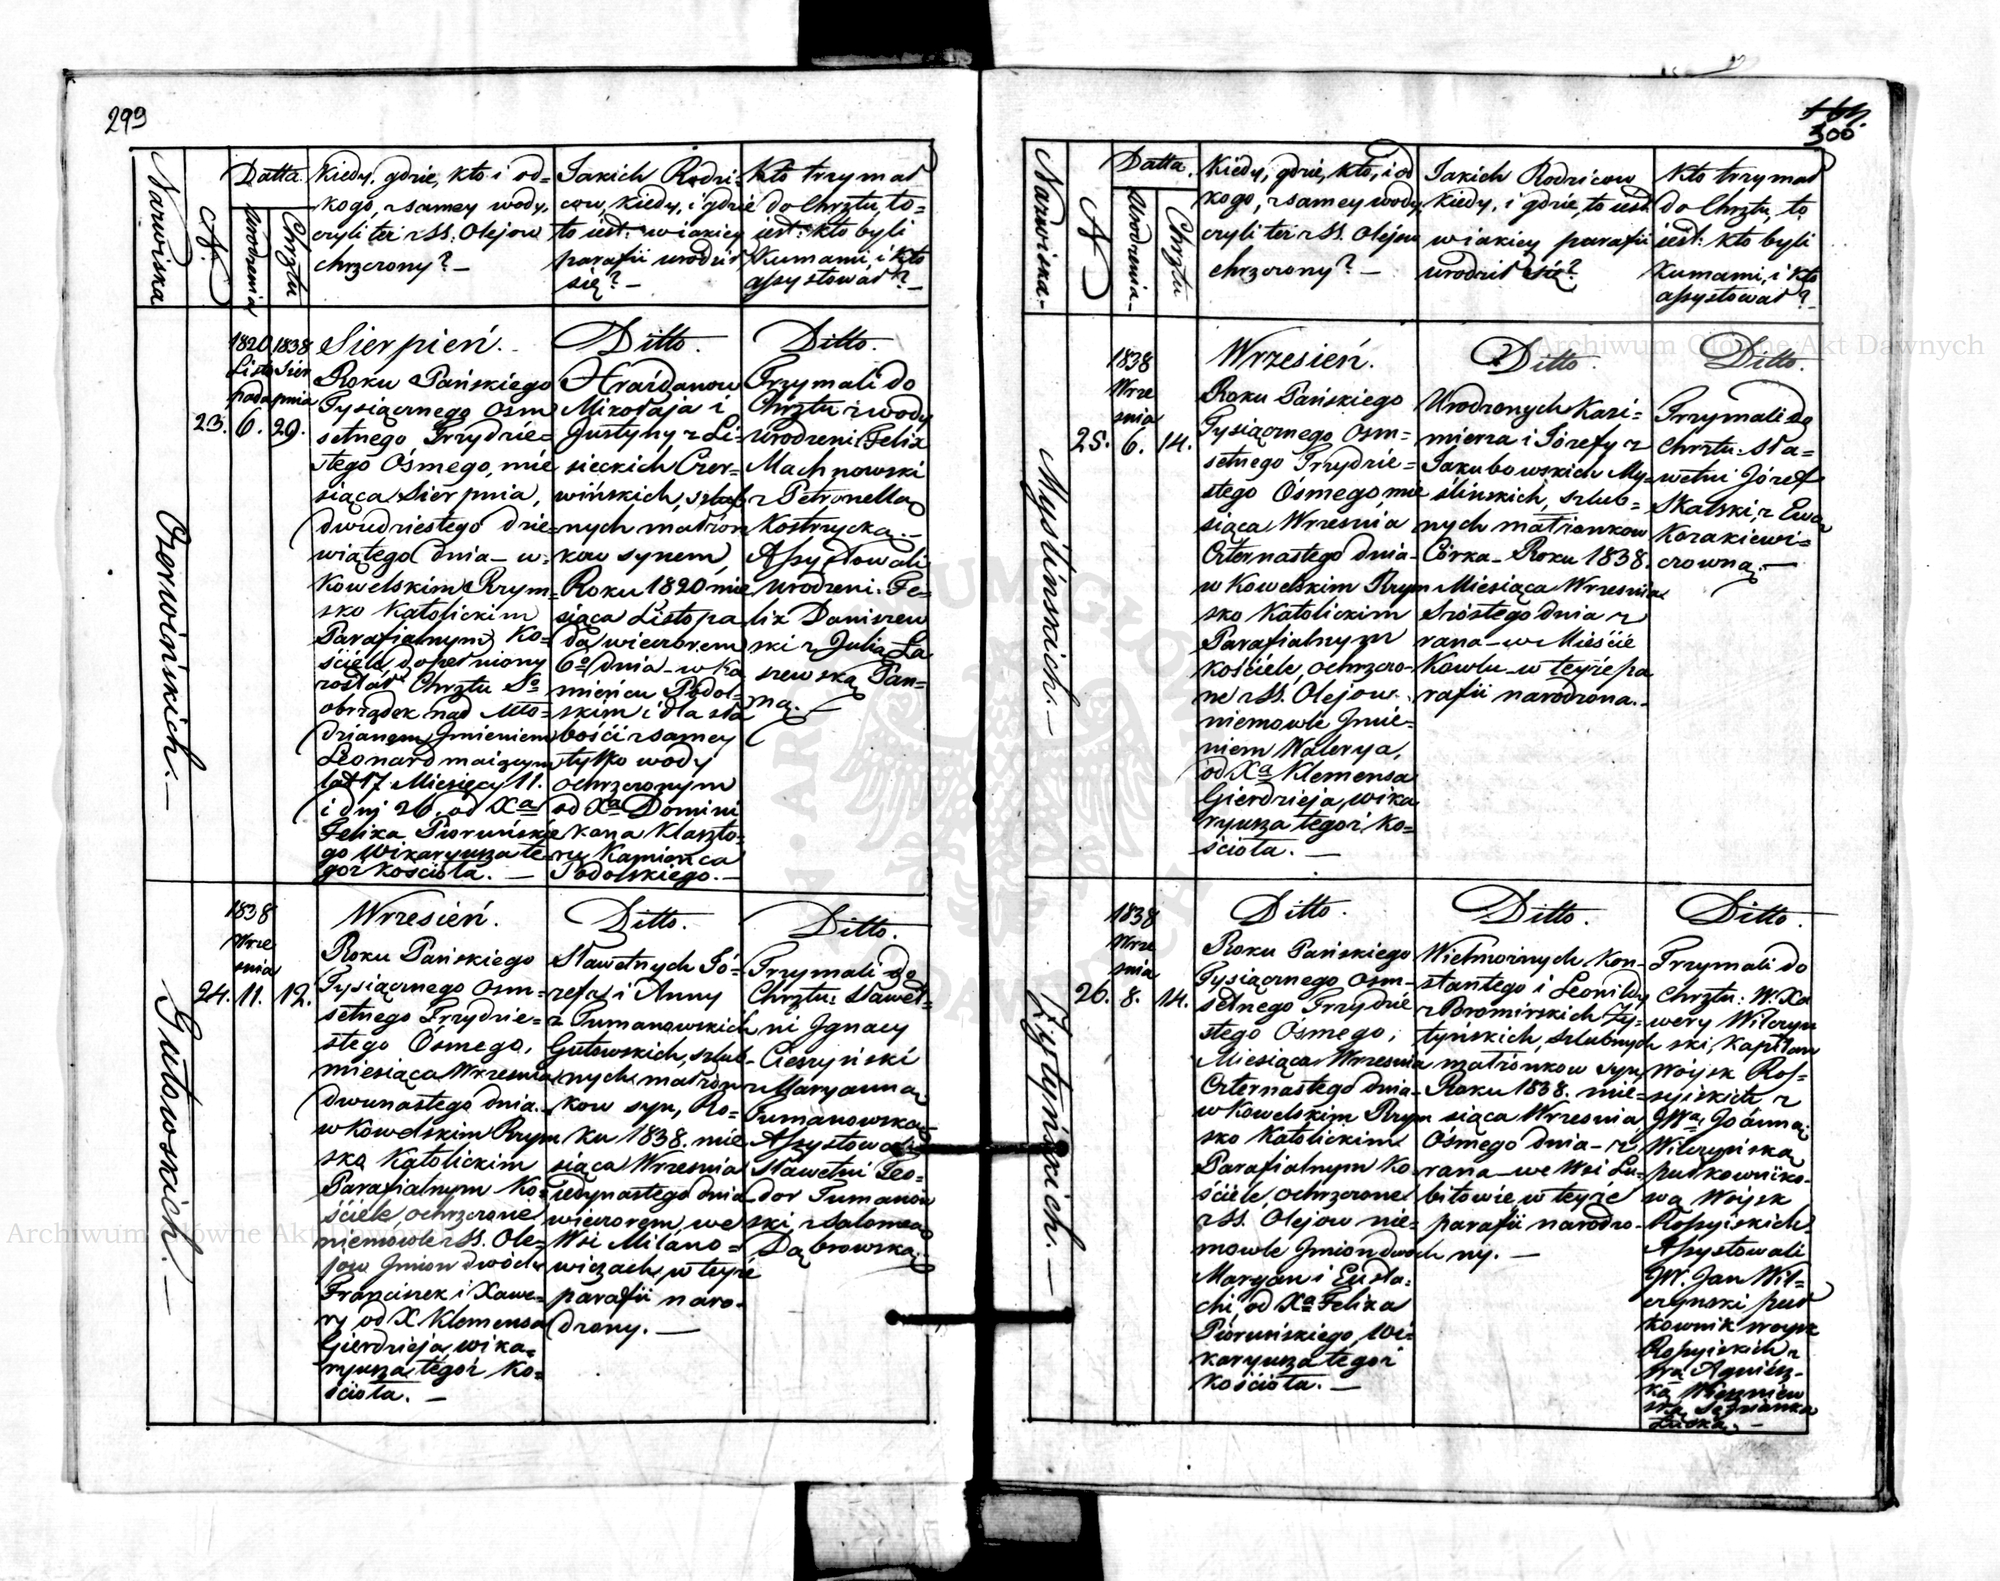 299
Nazwiska
№.
Datta.
Urodzenia
Chrztu
Kiedy, gdzie, kto i od=
kogo, z samey wody,
czyli też z SS. Olejow
chrzczony? —
Jakich Rodzi-
cow, kiedy, i gdzie
to iest: w iakiey
parafii urodził
się? —
Kto trzymał
do Chrztu, to=
iest: kto byli
Kumami, i kto
assystował? —
Czerwińskich. —
23.
1820
Listo
pada
6.
1838
Sier
pnia
29.
Sierpień.
Roku Pańskiego
Tysiącznego Osm
setnego Trzydzie=
stego Ósmego, mie
siąca Sierpnia,
dwudziestego dzie-
wiątego dnia – w=
Kowelskim Rzym=
sko Katolickim
Parafialnym Ko=
ściele, dopełniony
został Chrztu So
obrządek nad Mło=
dzianem Jmieniem
Leonard maiącym
lat 17. Miesięcy 11.
i dni 26. od Xa
Felixa Pioruńskie
go Wikaryusza te=
goż Kościoła. —
Ditto.
Hrażdanow
Mikołaja i
Justyny z Li=
sieckich Czer=
wińskich, szlub
nych małżon
kow synem,
Roku 1820 mie
siąca Listopa
da wieczorem
6o dnia – w Ka
mieńcu Podol=
skim i dla sła
bości z samey
tylko wody
ochrzczonym
od Xa Domini
kana Klaszto=
ru Kamieńca
Podolskiego. —
Ditto.
Trzymali do
Chrztu z wody
Urodzeni Felix
Machnowski
z Petronellą
Kostrzycką. —
Assystowali
Urodzeni Fe=
lix Daniszew
ski z Julią La
szewską Pan=
ną. —
Gutowskich. —
24.
1838
Wrze
snia
11.
12.
Wrzesień.
Roku Pańskiego
Tysiącznego Osm=
setnego Trzydzie=
stego Ósmego,
miesiąca Wrzesnia
dwunastego dnia.
w Kowelskim Rzym
sko Katolickim
Parafialnym Ko=
ściele, ochrzczone
niemowle z SS. Ole=
jow Jmion dwoch
Franciszek i Xawe=
ry od X Klemensa
Gierdzieja, wika=
ryusza tegoż Ko=
ścioła. —
Ditto.
Sławetnych Jó=
zefa i Anny
z Tumanowskich
Gutowskich, szlub
nych małżon
kow syn, Ro=
ku 1838. mie
siąca Wrzesnia
iedynastego dnia
wieczorem, we
Wsi Milano=
wiczach w teyże
parafii naro-
dzony. —
Ditto.
Trzymali do
Chrztu: Sławet=
ni Jgnacy
Cieszyński
z Maryanną
Tumanowską
Assystowali
Sławetni Teo=
dor Tumanow
ski, z Salomeą
Dąbrowską.
300
Nazwiska. -
№
Datta.
Urodzenia.
Chrztu
Kiedy, gdzie, kto, i od
kogo, z samey wody,
czyli też z SS. Olejow
chrzczony? —
Jakich Rodzicow
Kiedy, i gdzie, to iest.
w iakiey parafii
urodził się?
Kto trzymał
do Chrztu, to
iest: kto byli
Kumami, i kto
assystował?
Myślińskich. —
25.
1838
Wrze
snia
6.
14.
Wrzesień.
Roku Pańskiego
Tysiącznego Osm=
setnego Trzydzie=
stego Ósmego, mie
siąca Wrzesnia
Czternastego dnia –
w Kowelskim Rzym
sko Katolickim
Parafialnym
Kościele, ochrzczo=
ne z SS. Olejow.
niemowle Jmie=
niem Walerya,
od Xa Klemensa
Gierdzieja, wika
ryusza tegoż Ko=
ścioła. —
Ditto.
Urodzonych Kazi=
mierza i Józefy z
Jakubowskich My=
ślińskich, szlub=
nych małżonkow
Córka – Roku 1838.
Miesiąca Wrzesnia
Szóstego dnia z
rana – w Mieście
Kowlu – w teyże pa
rafii narodzona. -
Ditto.
Trzymali do
Chrztu: Sła=
wetni Józef
Skalski, z Ewą
Kozakiewi=
czowną. —
Żytyńskich. —
26.
1838
Wrze
snia
8.
14.
Ditto.
Roku Pańskiego
Tysiącznego Osm=
setnego Trzydzie
stego Osmego,
Miesiąca Wrzesnia
Czternastego dnia –
w Kowelskim Rzym
sko Katolickim
Parafialnym Ko=
ściele, ochrzczone
z SS. Olejow nie=
mowle Jmion dwoch
Maryan i Eusta=
chi, od Xa Felixa
Pioruńskiego, Wi=
karyusza tegoż
Kościoła. —
Ditto.
Wielmożnych Kon=
stantego i Leonildy
z Boromirskich Ży=
tyńskich, szlubnych
małżonkow syn,
Roku 1838. mie=
siąca Wrzesnia,
Ósmego dnia – z
rana – we Wsi Lu=
bitowie, w teyże
parafii narodzo=
ny. —
Ditto.
Trzymali do
Chrztu: W. Xa
wery Wilczyn
ski, Kapitan
Woysk Ros=
syiskich z
JWą. Joanną
Wilczyńską
pułkowniko=
wą Woysk
Rossyiskich
Assystowali
JW. Jan Wil=
czynski puł
kownik Woysk
Rossyiskich z
Wą Agniesz=
ką Wiszniew
ską
Archiwum Główne Akt Dawnych
Archiwum Główne Akt Dawnych